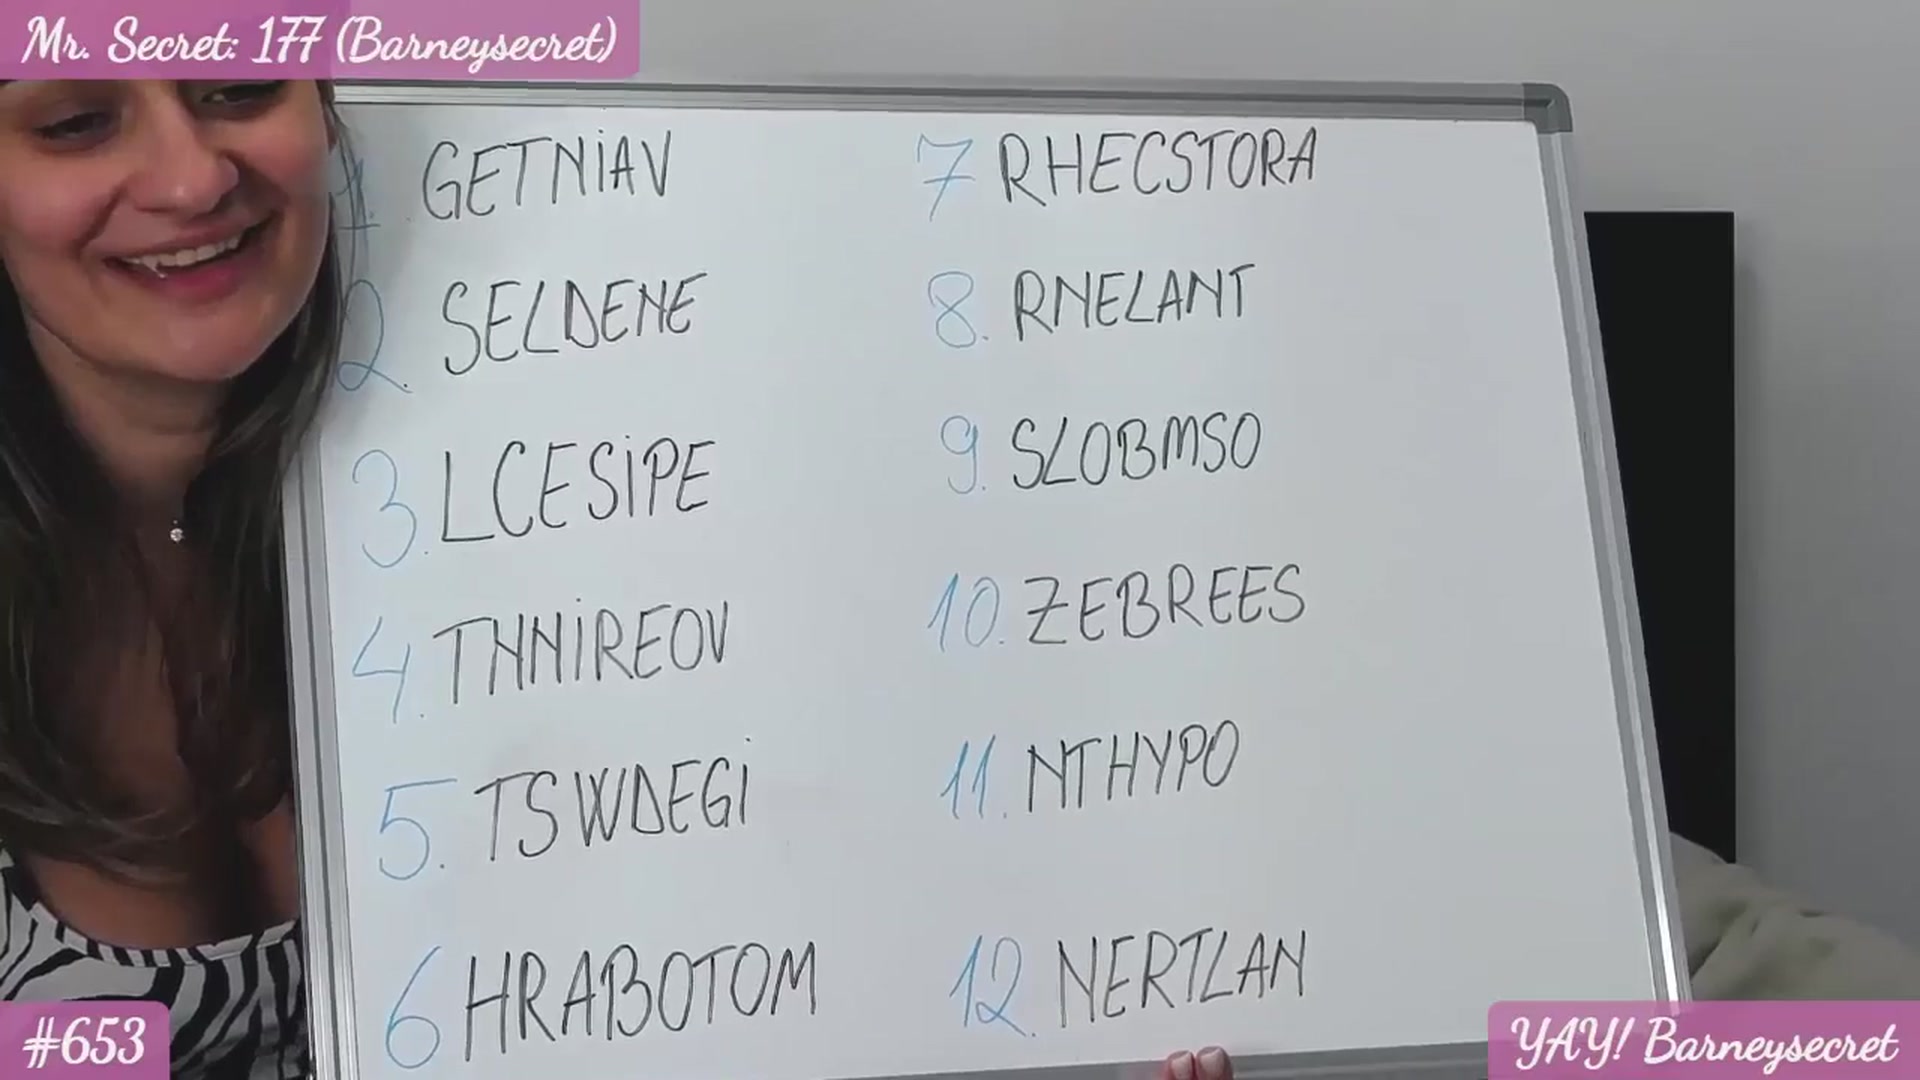 Mr. Secret: 177 (Barneysecret)
1. GETNiAV
2. SELDENE
3. LCESiPE
4. THNiREOV
5. TSWDEGi
6 HRABOTOM
7 RHECSTORA
8. RNELANT
9. SLOBMSO
10. ZEBREES
11. NTHYPO
12. NERTLAN
#653
YAY! Barneysecret